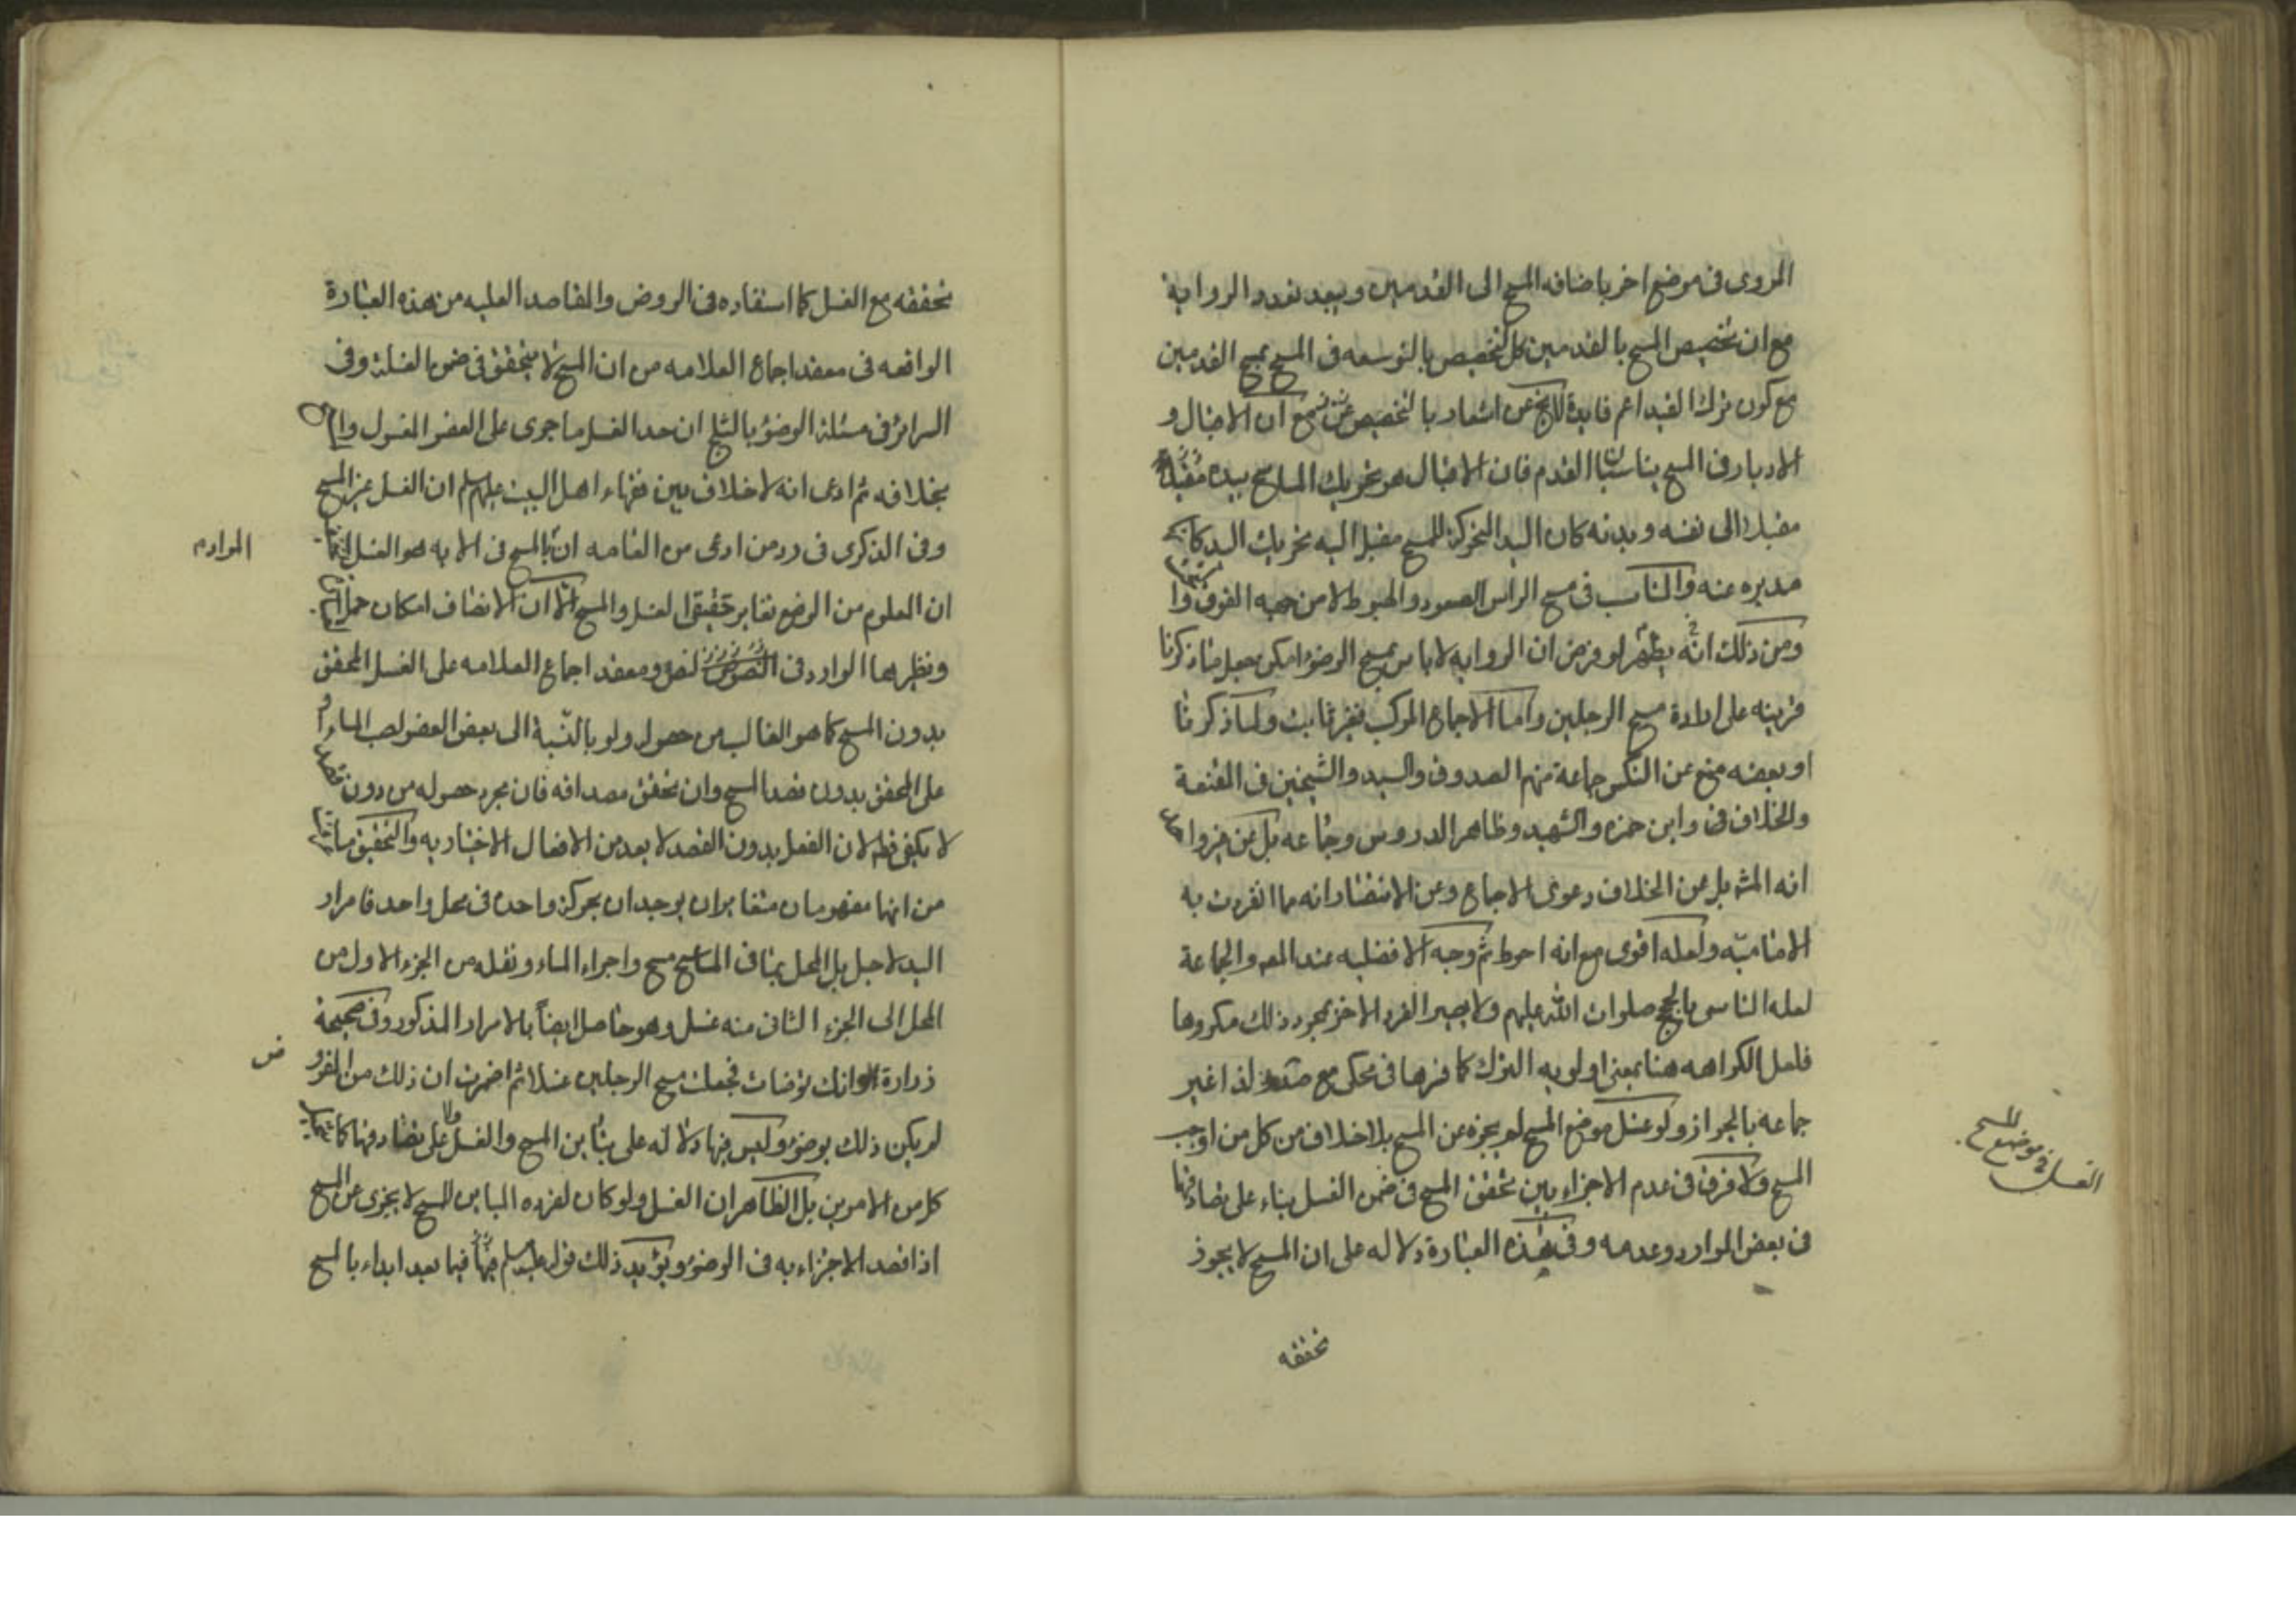 المروى فى موضع اخر باضافه المسح الى القدمين ويبعد تعدد الرواية
مع ان تخصيص المسح بالقدمين كالتخصيص بالتوسعه فى المسح بمسح القدمين
مع كون ترك القيد اعم فايدة لايخ عن اشعار بالتخصيص مع ان الاقبال و
الادبار فى المسح يناسبان القدم فان الاقبال هو تحريك الماسح يده
مقبلا الى نفسه وبدنه كان اليد المتحركة للمسح مقبل اليه تحريك اليد
مدبره عنه والمناسب فى مسح الراس الصعود والهبوط لا من جهه الفوق
ومن ذلك انه يظهر لو فرض ان الروايه لاباس بمسح الوضوء امكن جعل ماذكرنا
قرينه على ارادة مسح الرجلين واما الاجماع المركب فغير ثابت ولما ذكرنا
او بعضه منع عن النكس جماعة منهم الصدوق والسيد والشيخين فى المقنعة
والخلاف وابن حمزه والشهيد وظاهر الدروس وجماعه بل عن غير واحد
انه المش بل عن الخلاف دعوى الاجماع وعن الانتصار انه مما انفردت به
الاماميّه ولعله اقوى مع انه احوط ثم وجه الافضليه عند المص والجماعة
لعله التاسى بالحجج صلوات الله عليهم ولا يصير الفرد الاخر بمجرد ذلك مكروها
فلعل الكراهه هنا بمعنى اولويه الترك كما فسرها فى محكى مع صد ولذا عبر
جماعه بالجواز ولو غسل موضع المسح لم يجزه عن المسح بلا خلاف من كل من اوجب
المسح ولا فرق فى عدم الاجزاء بين تحقق المسح فى ضمن الغسل بناء على تصادقهما
فى بعض الموارد وعدمه وفى هذه العبارة دلاله على ان المسح لا يجوز
تحققه
الغسل فى موضع المسح
تحققه مع الغسل كما استفاده فى الروض والمقاصد العليه من هذه العبارة
الواقعه فى معقد اجماع العلامه من ان المسح لا يتحقق فى ضمن الغسل وفى
السرائر فى مسئلة الوضوء بالثلج ان حد الغسل ما جرى على العضو المغسول
بخلافه ثم ادعى انه لا خلاف بين فقهاء اهل البيت عليهم السلم ان الغسل غير المسح
وفى الذكرى فى رد من ادعى من العامه ان المسح فى الايه هو الغسل
المراد م
ان المعلوم من الوضع تغاير حقيقتى الغسل والمسح الا ان الانصاف امكان حمل
ونظيرهما الوارد فى النصوص ومعقد اجماع العلامه على الغسل المحقق
بدون المسح كما هو الغالب من حصوله ولو بالنّسبة الى بعض العضو لصب الماء
على المحقق بدون قصد المسح وان تحقق مصداقه فان مجرد حصوله من دون قصد
لا يكفى قطعا لان الفعل بدون القصد لا يعد من الافعال الاختياريه والتحقيق
من انهما مفهومان متغايران يوجدان بحركة واحده فى محل واحد فامرار
اليد لاجل بل المحل بما فى الماسح مسح واجراء الماء ونقله من الجزء الاول من
المحل الى الجزء الثانى منه غسل وهو حاصل ايضاً بالامرار المذكور وفى صحيحة
زرارة لو انك توضات فجعلت مسح الرجلين غسلا ثم اضمرت ان ذلك من المفرو
ض
لم يكن ذلك بوضوء وليس فيها دلاله على تباين المسح والغسل ولا على تصادقهما
كل من الامرين بل الظاهر ان الغسل ولو كان لفرده المباين للمسح لا يجزى عن المسح
اذا قصد الاجزاء به فى الوضوء ويؤيد ذلك قوله عليه السلم فيها فيما بعد ابداء بالمسح